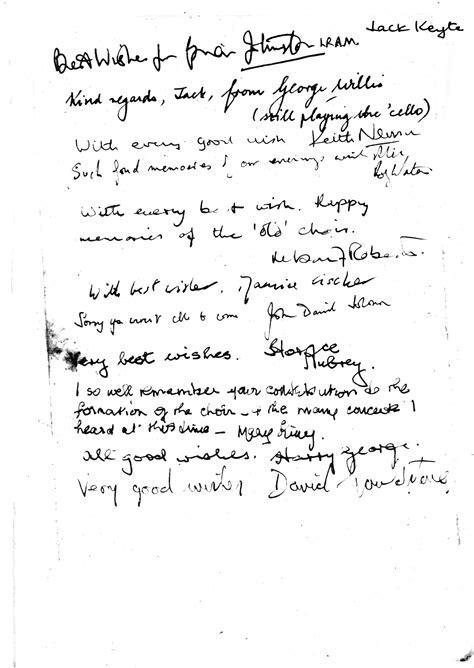 Jack Keyte
Best Wishes for Johnston LRAM
Kind regards, Jack, from George Willis
(still playing the 'cello)
With every good wish Keith
Such fond memories of our evenings with
With every best wish. Happy
memories of the 'old' choir.
Roberts.
With best wishes, Maurice
Sorry you weren't able to come John David
Very best wishes. Horace
Aubrey.
I so well remember your contribution to the
formation of the choir - & the many concerts I
heard at this time - Mary
All good wishes. Harry George.
Very good wishes David